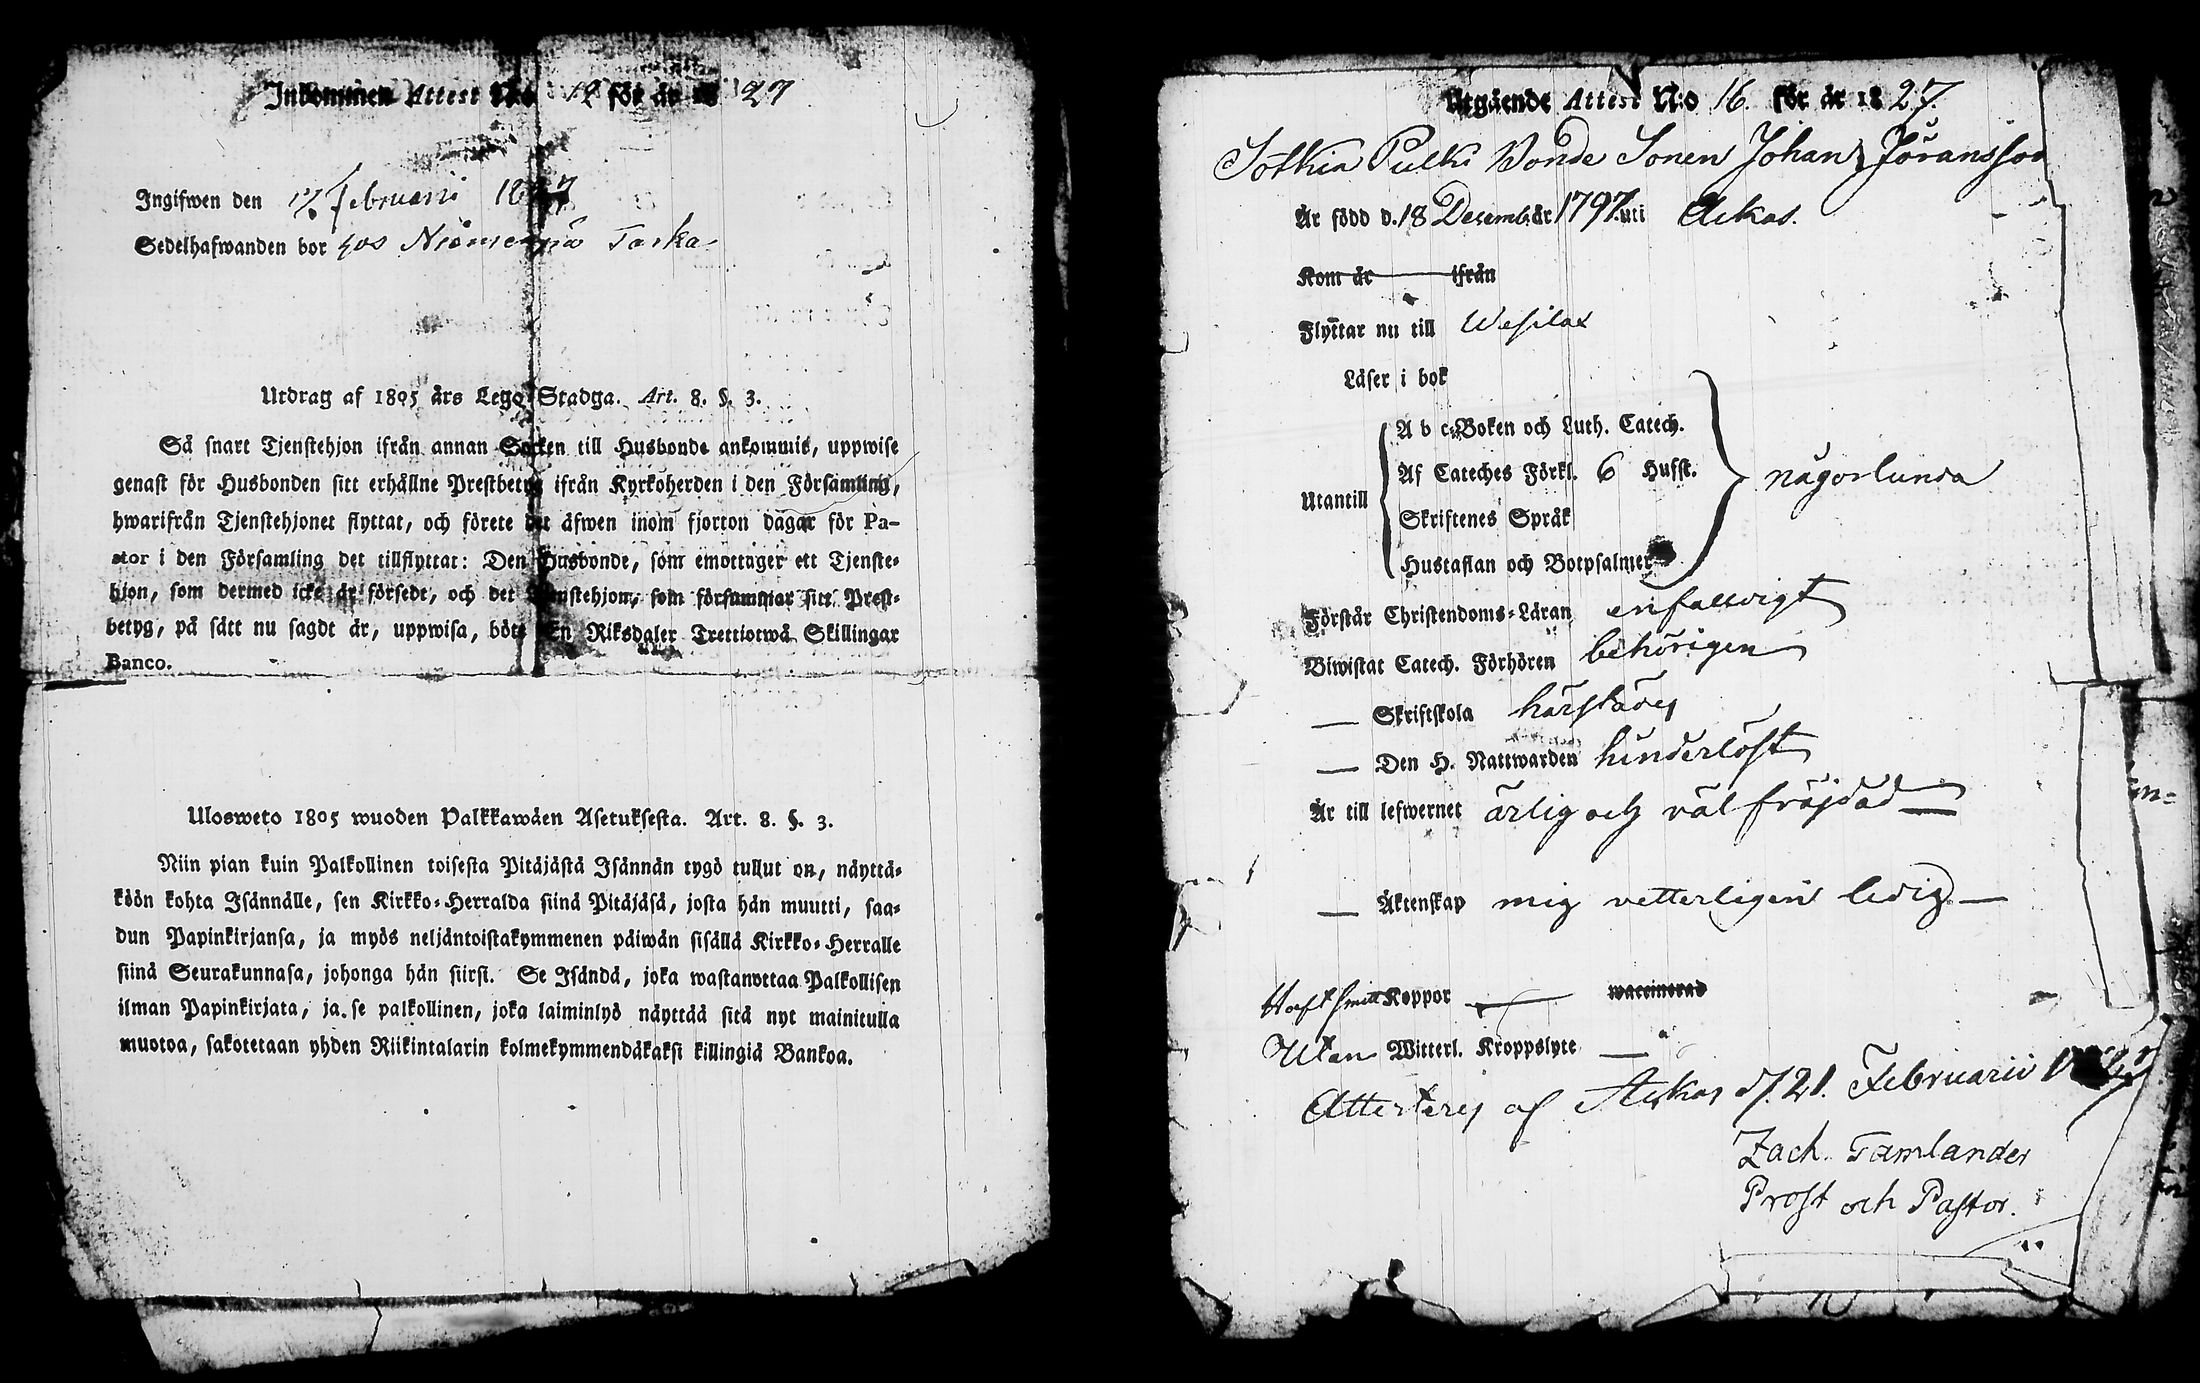 Inkommen Attest N:o 12 för år 18 27
Ingifwen den 17 Februarii 1827
Sedelhafwanden bor hos Taska
Utdrag af 1805 års Lego-Stadga. Art. 8. §. 3.
Så snart Tjenstehjon ifrån annan Socken till Husbonde ankommit, uppwise
genast för Husbonden sitt erhållne Prestbetyg ifrån Kyrkoherden i den Församling,
hwarifrån Tjenstehjonet flyttat, och förete det äfwen inom fjorton dagar för Pa-
stor i den Församling det tillflyttat: Den Husbonde, som emottager ett Tjenste-
hjon, som dermed icke är försedt, och det Tjenstehjon, som försummar sitt Prest-
betyg, på sätt nu sagdt är, uppwisa, böte En Riksdaler Trettiotwå Skillingar
Banco.
Ulosweto 1805 wuoden Palkkawäen Asetuksesta. Art. 8. §. 3.
Niin pian kuin Palkollinen toisesta Pitäjästä Isännän tygö tullut on, näyttä-
köön kohta Isännälle, sen Kirkko-Herralda siinä Pitäjäsä, josta hän muutti, saa-
dun Papinkirjansa, ja myös neljäntoistakymmenen päiwän sisällä Kirkko-Herralle
siinä Seurakunnasa, johonga hän siirsi. Se Isändä, joka wastanottaa Palkollisen
ilman Papinkirjata, ja se palkollinen, joka laiminlyö näyttää sitä nyt mainitulla
muotoa, sakotetaan yhden Riikintalarin kolmekymmendäkaksi killingiä Bankoa.
Utgående Attest N:o 16. för år 18 27.
Sotkia Pulki Bonde Sonen Johan Jöransson
Är född d. 18 Decemb. år 1797 uti Ackas.
Kom år ifrån
Flyttar nu till Wesilax
Läser i bok
A b c-Boken och Luth. Catech.
Af Cateches Förkl. 6 Hufst.
Utantill någorlunda
Skriftenes Språk
Hustaflan och Botpsalmer
Förstår Christendoms-Läran enfalldigt
Biwistat Catech. Förhören behörigen
— Skriftskola härstädes
— Den H. Nattwarden hinderlöst
Är till lefwernet ärlig och väl fräjdad —
— Äktenskap mig vetterligen ledig —
Haft Koppor — waccinerad
Utan Witterl. Kroppslyte —
Attesteras af Ackas d. 21. Februarii 1827
Zach. Tamlander
Prost och Pastor.